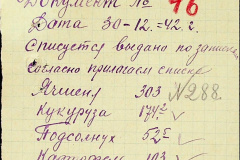 Документ № 46
Дата 30-12-42 г.
Списуется выдано по записки
согласно прилагаем списке
Ячменя 303 № 288.
Кукуруза 174,2
Подсолнух 52,5
Картофель 103